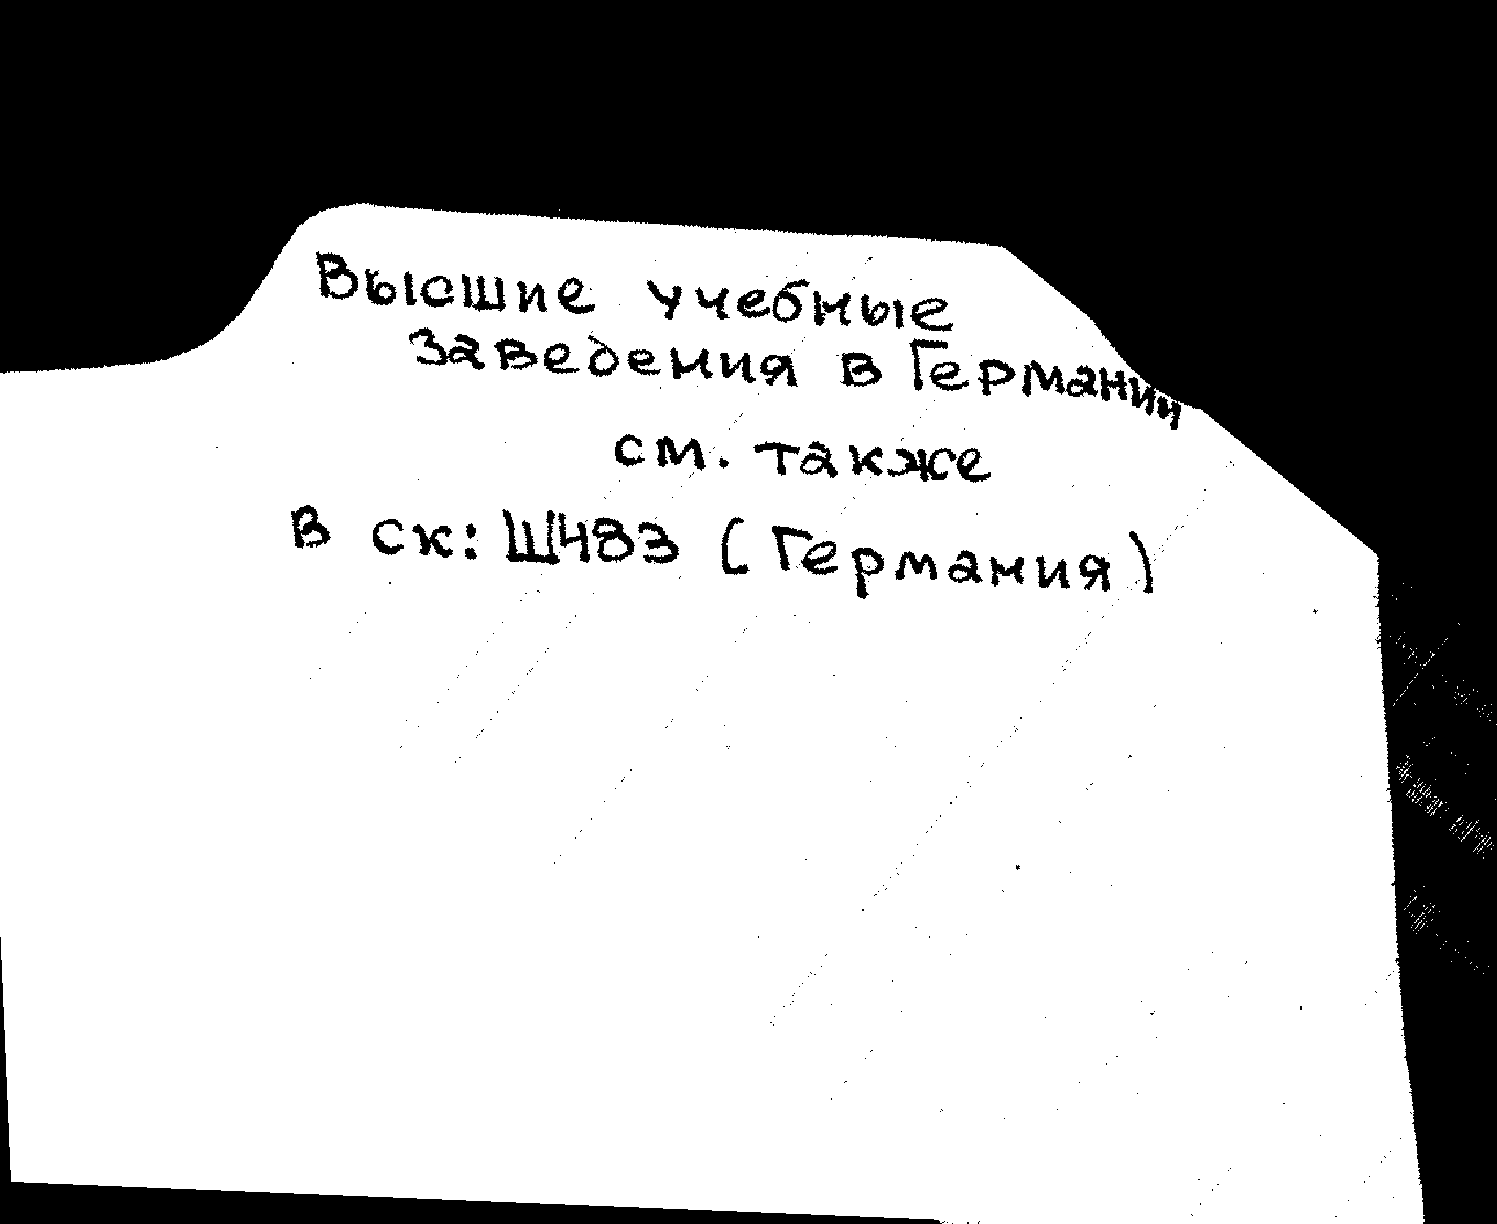 Высшие учебные
заведения в Германии
см. также
в ск: Ш483 (Германия)